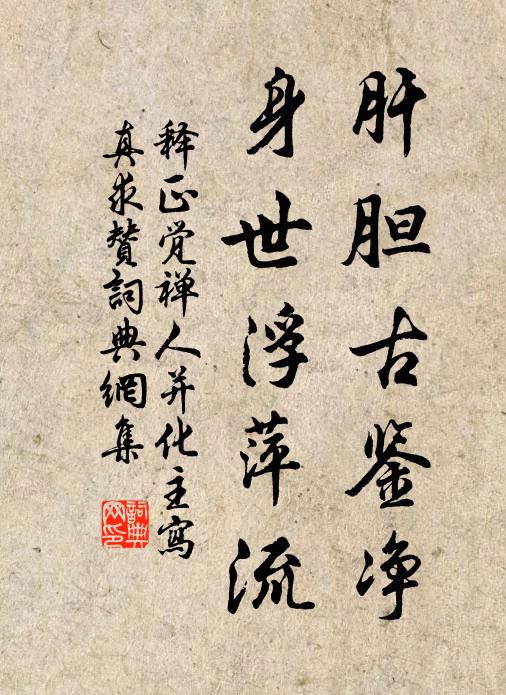 肝胆古鉴净
身世浮萍流
释正觉禅人并化主写
真求赞詞典網集
詞典
网印